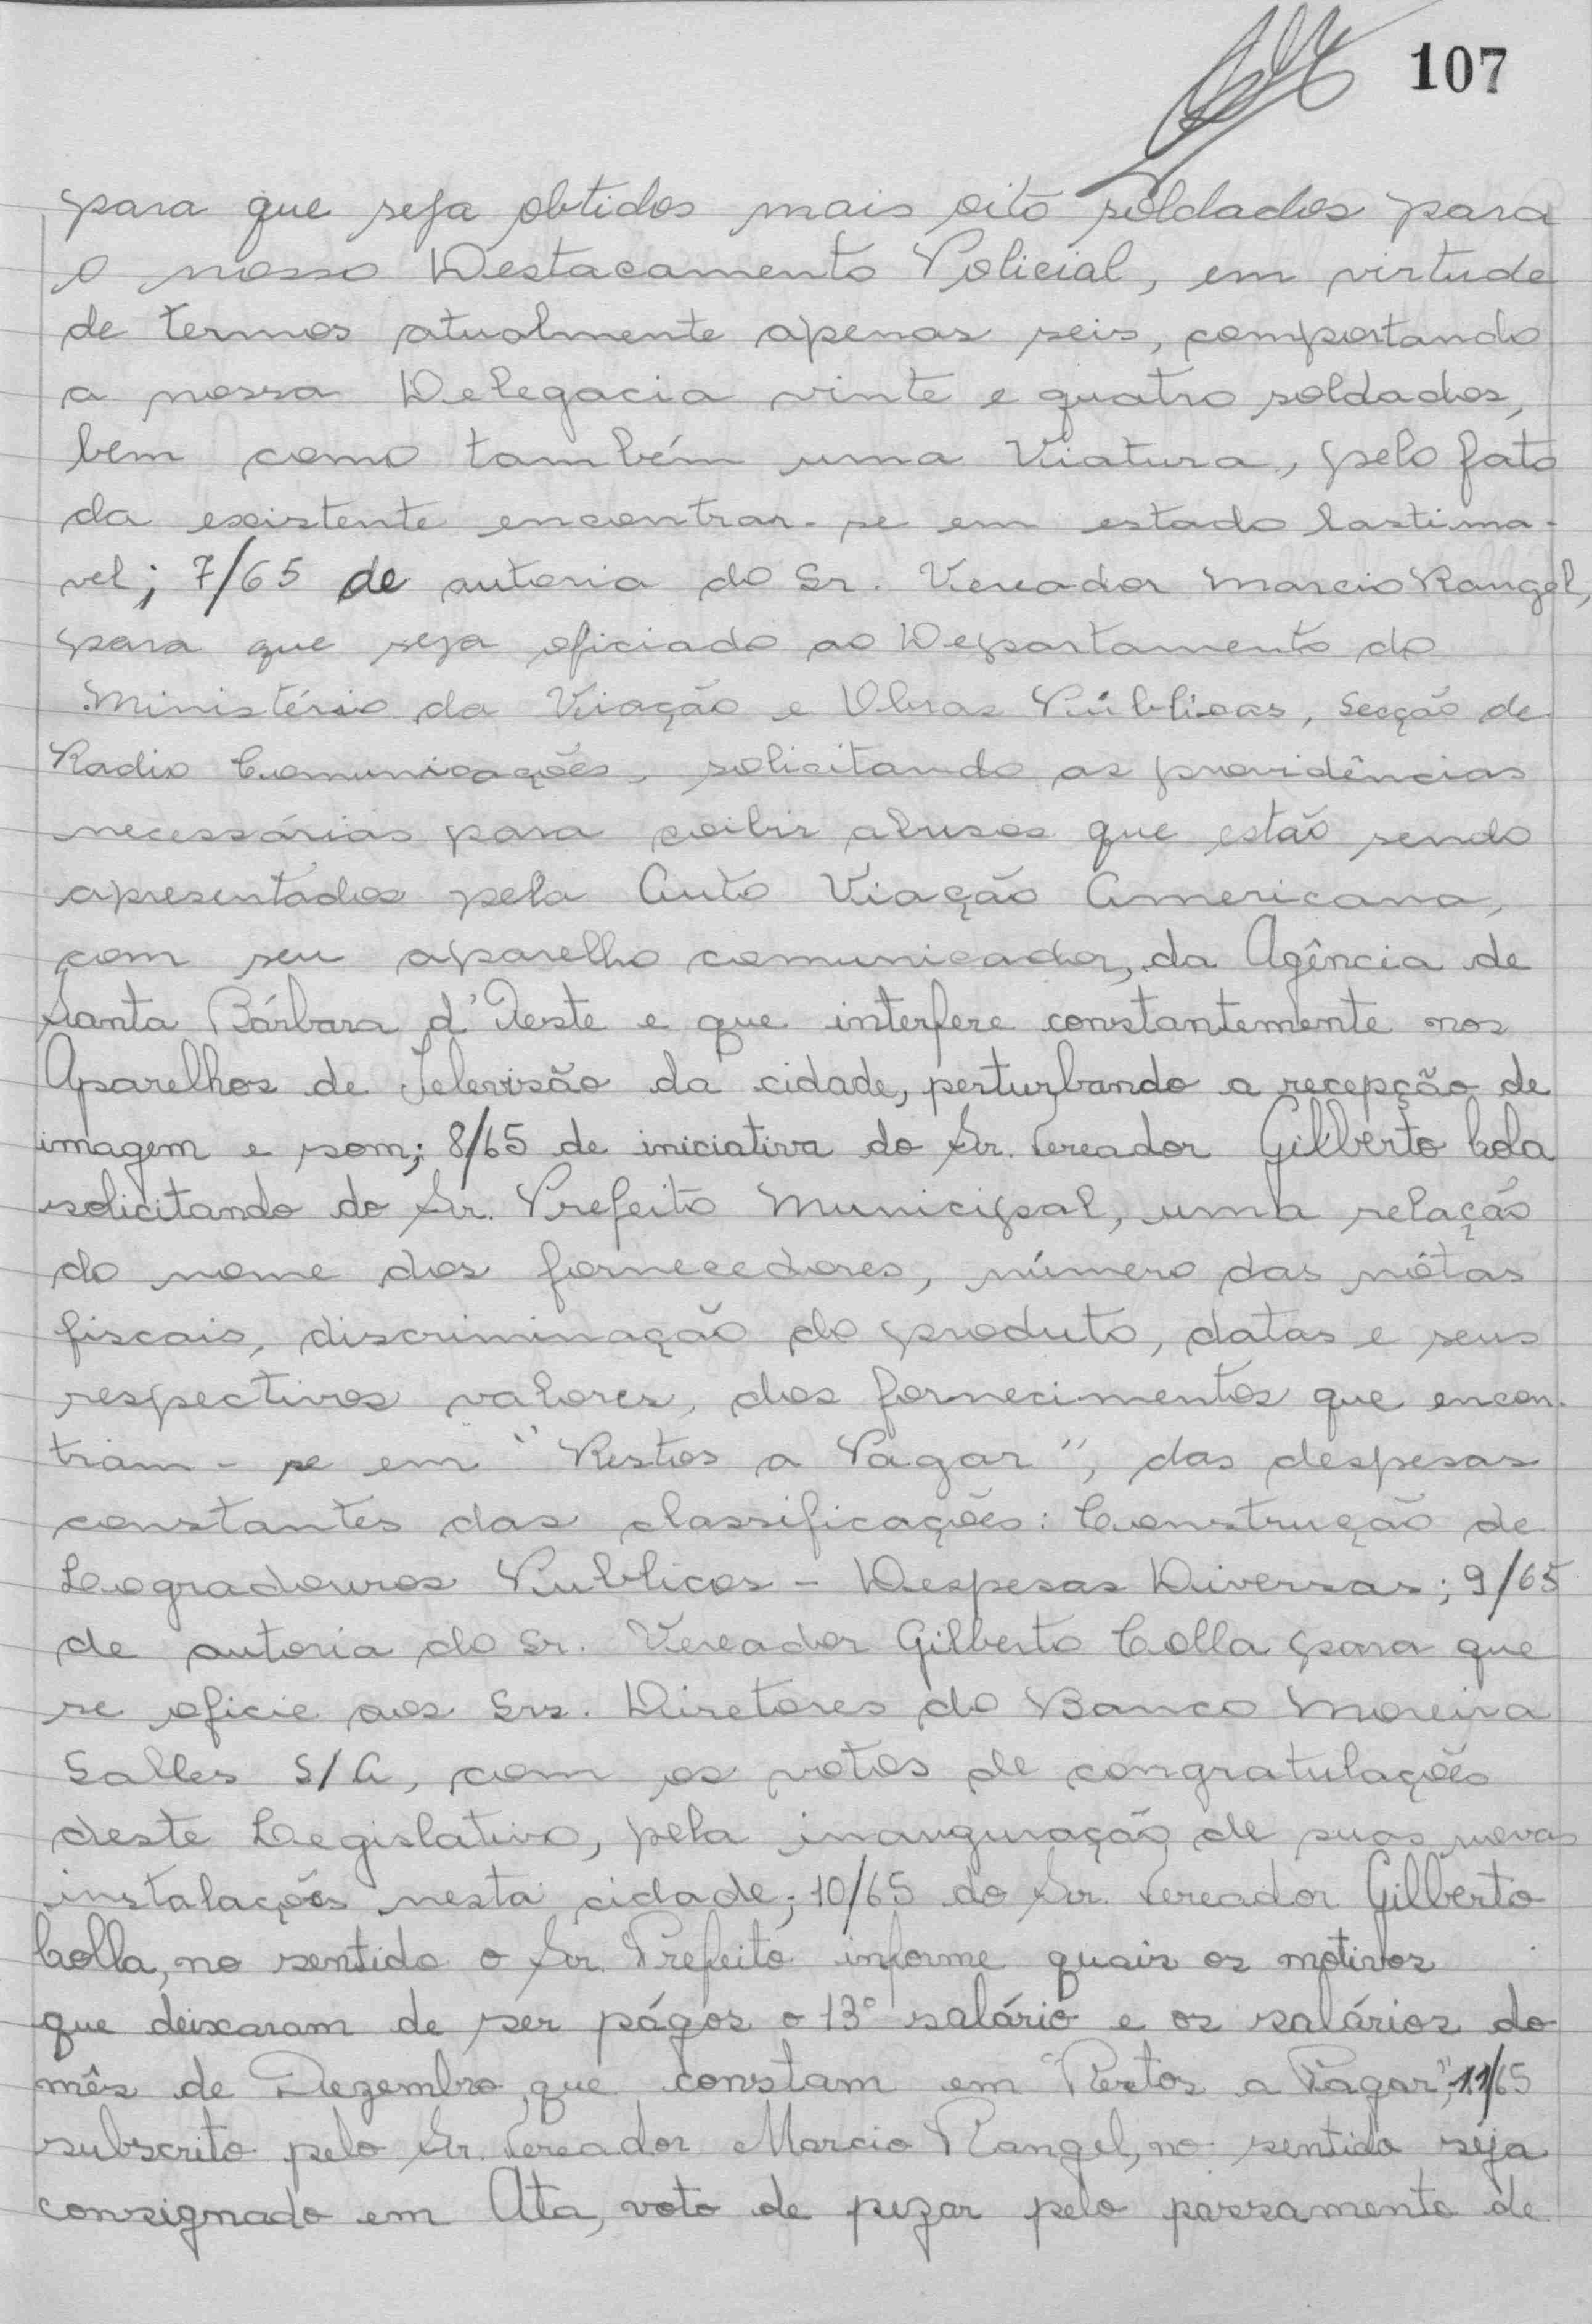 107
para que seja obtidos mais oito soldados para
o nosso Destacamento Policial, em virtude
de termos atualmente apenas seis, comportando
a nossa Delegacia vinte e quatro soldados,
bem como também uma Viatura, pelo fato
da existente encontrar-se em estado lastima-
vel; 7/65 de autoria do Sr. Vereador Marcio Rangel,
para que seja oficiado ao Departamento do
Ministério da Viação e Obras Públicas, Secção de
Radio Comunicações, solicitando as providências
necessárias para coibir abusos que estão sendo
apresentados pela Auto Viação Americana,
com seu aparelho comunicador, da Agência de
Santa Bárbara d'Oeste e que interfere constantemente nos
Aparelhos de Televisão da cidade, perturbando a recepção de
imagem e som; 8/65 de iniciativa do Sr. Vereador Gilberto Cola
solicitando do Sr. Prefeito Municipal, uma relação
do nome dos fornecedores, número das nótas
fiscais, discriminação do produto, datas e seus
respectivos valores, dos fornecimentos que encon-
tram-se em "Restos a Pagar", das despesas
constantes das classificações: Construção de
Logradouros Publicos - Despesas Diversas; 9/65
de autoria do Sr. Vereador Gilberto Colla para que
se oficie aos Srs. Diretores do Banco Moreira
Salles S/A, com os votos de congratulações
deste Legislativo, pela inauguração de suas novas
instalações nesta cidade; 10/65 do Sr. Vereador Gilberto
Colla, no sentido o Sr. Prefeito informe quais os motivos
que deixaram de ser págos o 13º salário e os salários do
mês de Dezembro, que constam em "Restos a Pagar"; 11/65
subscrito pelo Sr. Vereador Marcio Rangel, no sentido seja
consignado em Ata, voto de pezar pelo passamento de